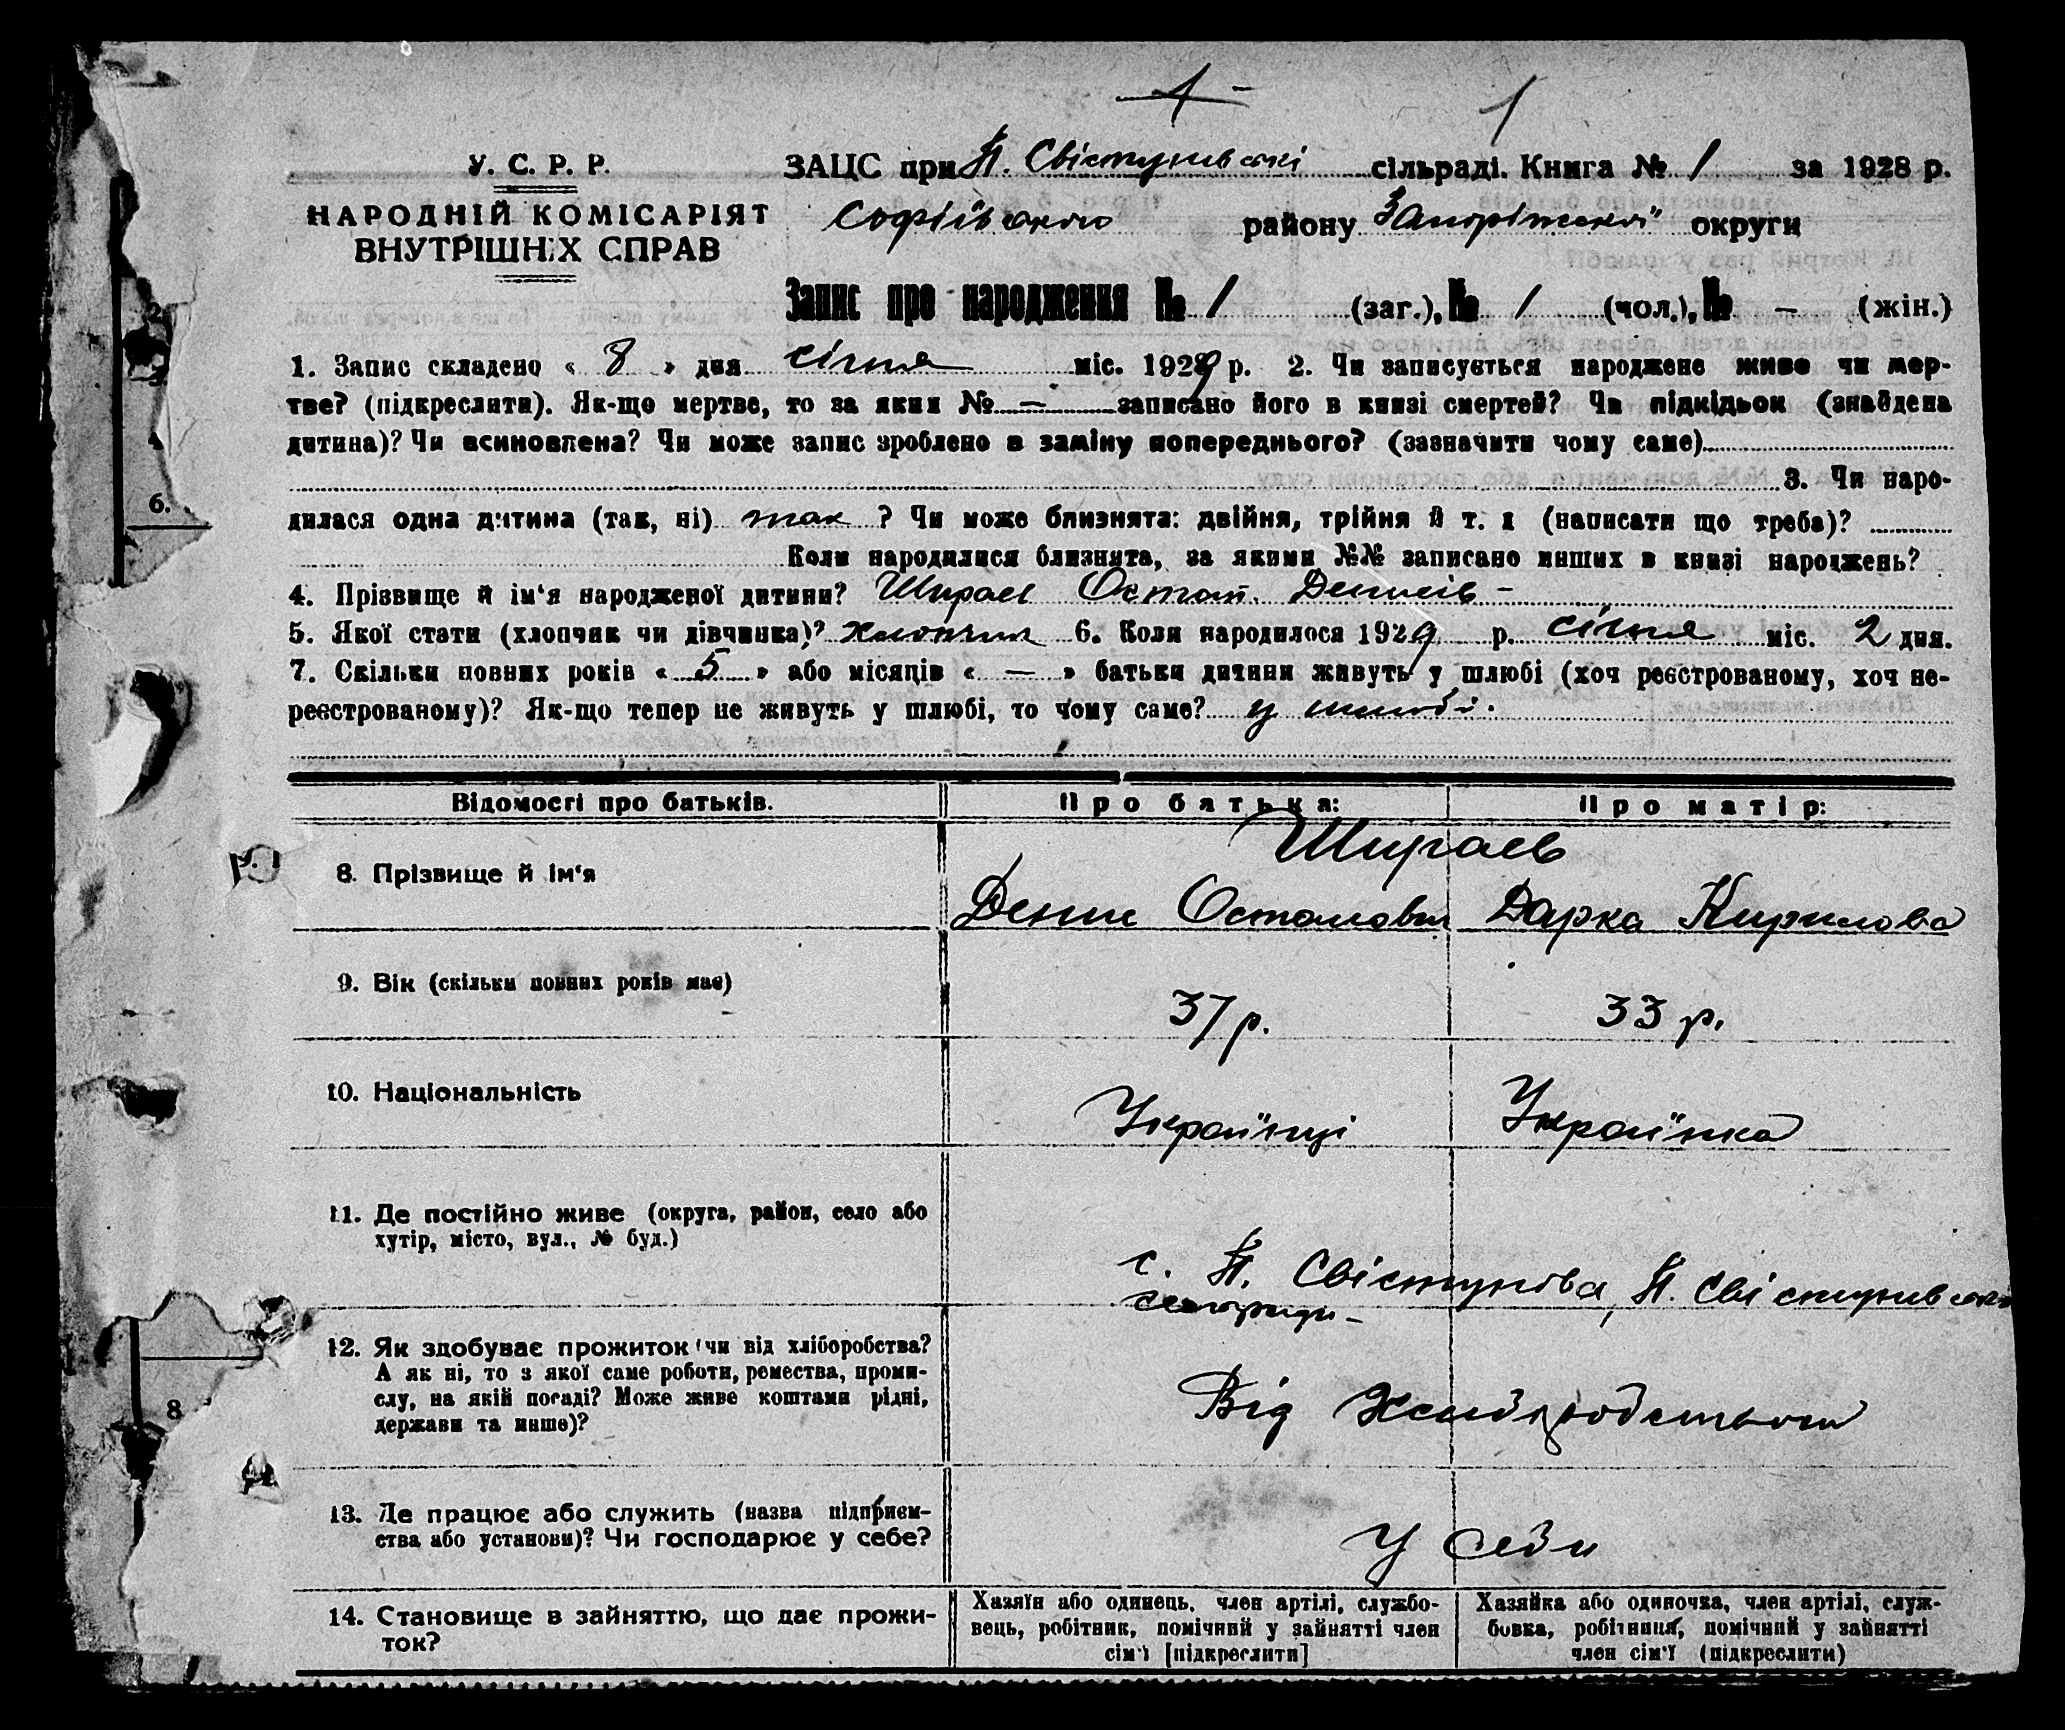 1
У. С. Р. Р.
ЗАЦС при П. Свістунивські сільраді. Книга № 1 за 1928 р.
НАРОДНІЙ КОМІСАРІЯТ
ВНУТРІШНІХ СПРАВ
Софіївського району Запоріжської округи
Запис про народження № 1 (заг.), № 1 (чол.), № – (жін.)
1. Запис складено « 8 » дня січня міс. 1929 р. 2. Чи записується народжене живе чи мер-
тве? (підкреслити). Як-що мертве, то за яким № — записано його в книзі смертей? Чи підкідьок (знайдена
дитина)? Чи всиновлена? Чи може запис зроблено в заміну попереднього? (зазначити чому саме)
3. Чи наро-
дилася одна дитина (так, ні) так ? Чи може близнята: двійня, трійня й т. і (написати що треба)?
Коли народилися близнята, за якими №№ записано инших в книзі народжень?
4. Прізвище й ім‘я народженої дитини? Шираев Остап. Денисів –
5. Якої стати (хлопчик чи дівчинка)? хлопчик 6. Коли народилося 1929 р. січня міс. 2 дня.
7. Скільки повних років « 5 » або місяців « — » батьки дитини живуть у шлюбі (хоч реєстрованому, хоч не-
реєстрованому)? Як-що тепер не живуть у шлюбі, то чому саме? у шлюбі.
Відомості про батьків. Про батька: Про матір:
Шираев
8. Прізвище й ім‘я
Денис Остапович Дарка Кирилова
9. Вік (скільки повних років має)
37 р. 33 р.
10. Національність
Українці Українка
11. Де постійно живе (округа, район, село або
хутір, місто, вул., № буд.)
с. П. Свістунова, П. Свістунивсько
сельради –
12. Як здобуває прожиток чи від хліборобства?
А як ні, то з якої саме роботи, ремества, проми-
слу, на якій посаді? Може живе коштами рідні,
держави та инше)?
Від
13. Де працює або служить (назва підприєм-
ства або установи)? Чи господарює у себе?
У себи
14. Становище в зайняттю, що дає прожи-
ток?
Хазяїн або одинець, член артілі, службо-
вець, робітник, помічний у зайнятті член
сім‘ї [підкреслити]
Хазяйка або одиночка, член артілі, служ-
бовка, робітниця, помічний у зайнятті
член сім‘ї (підкреслити)
6.
8